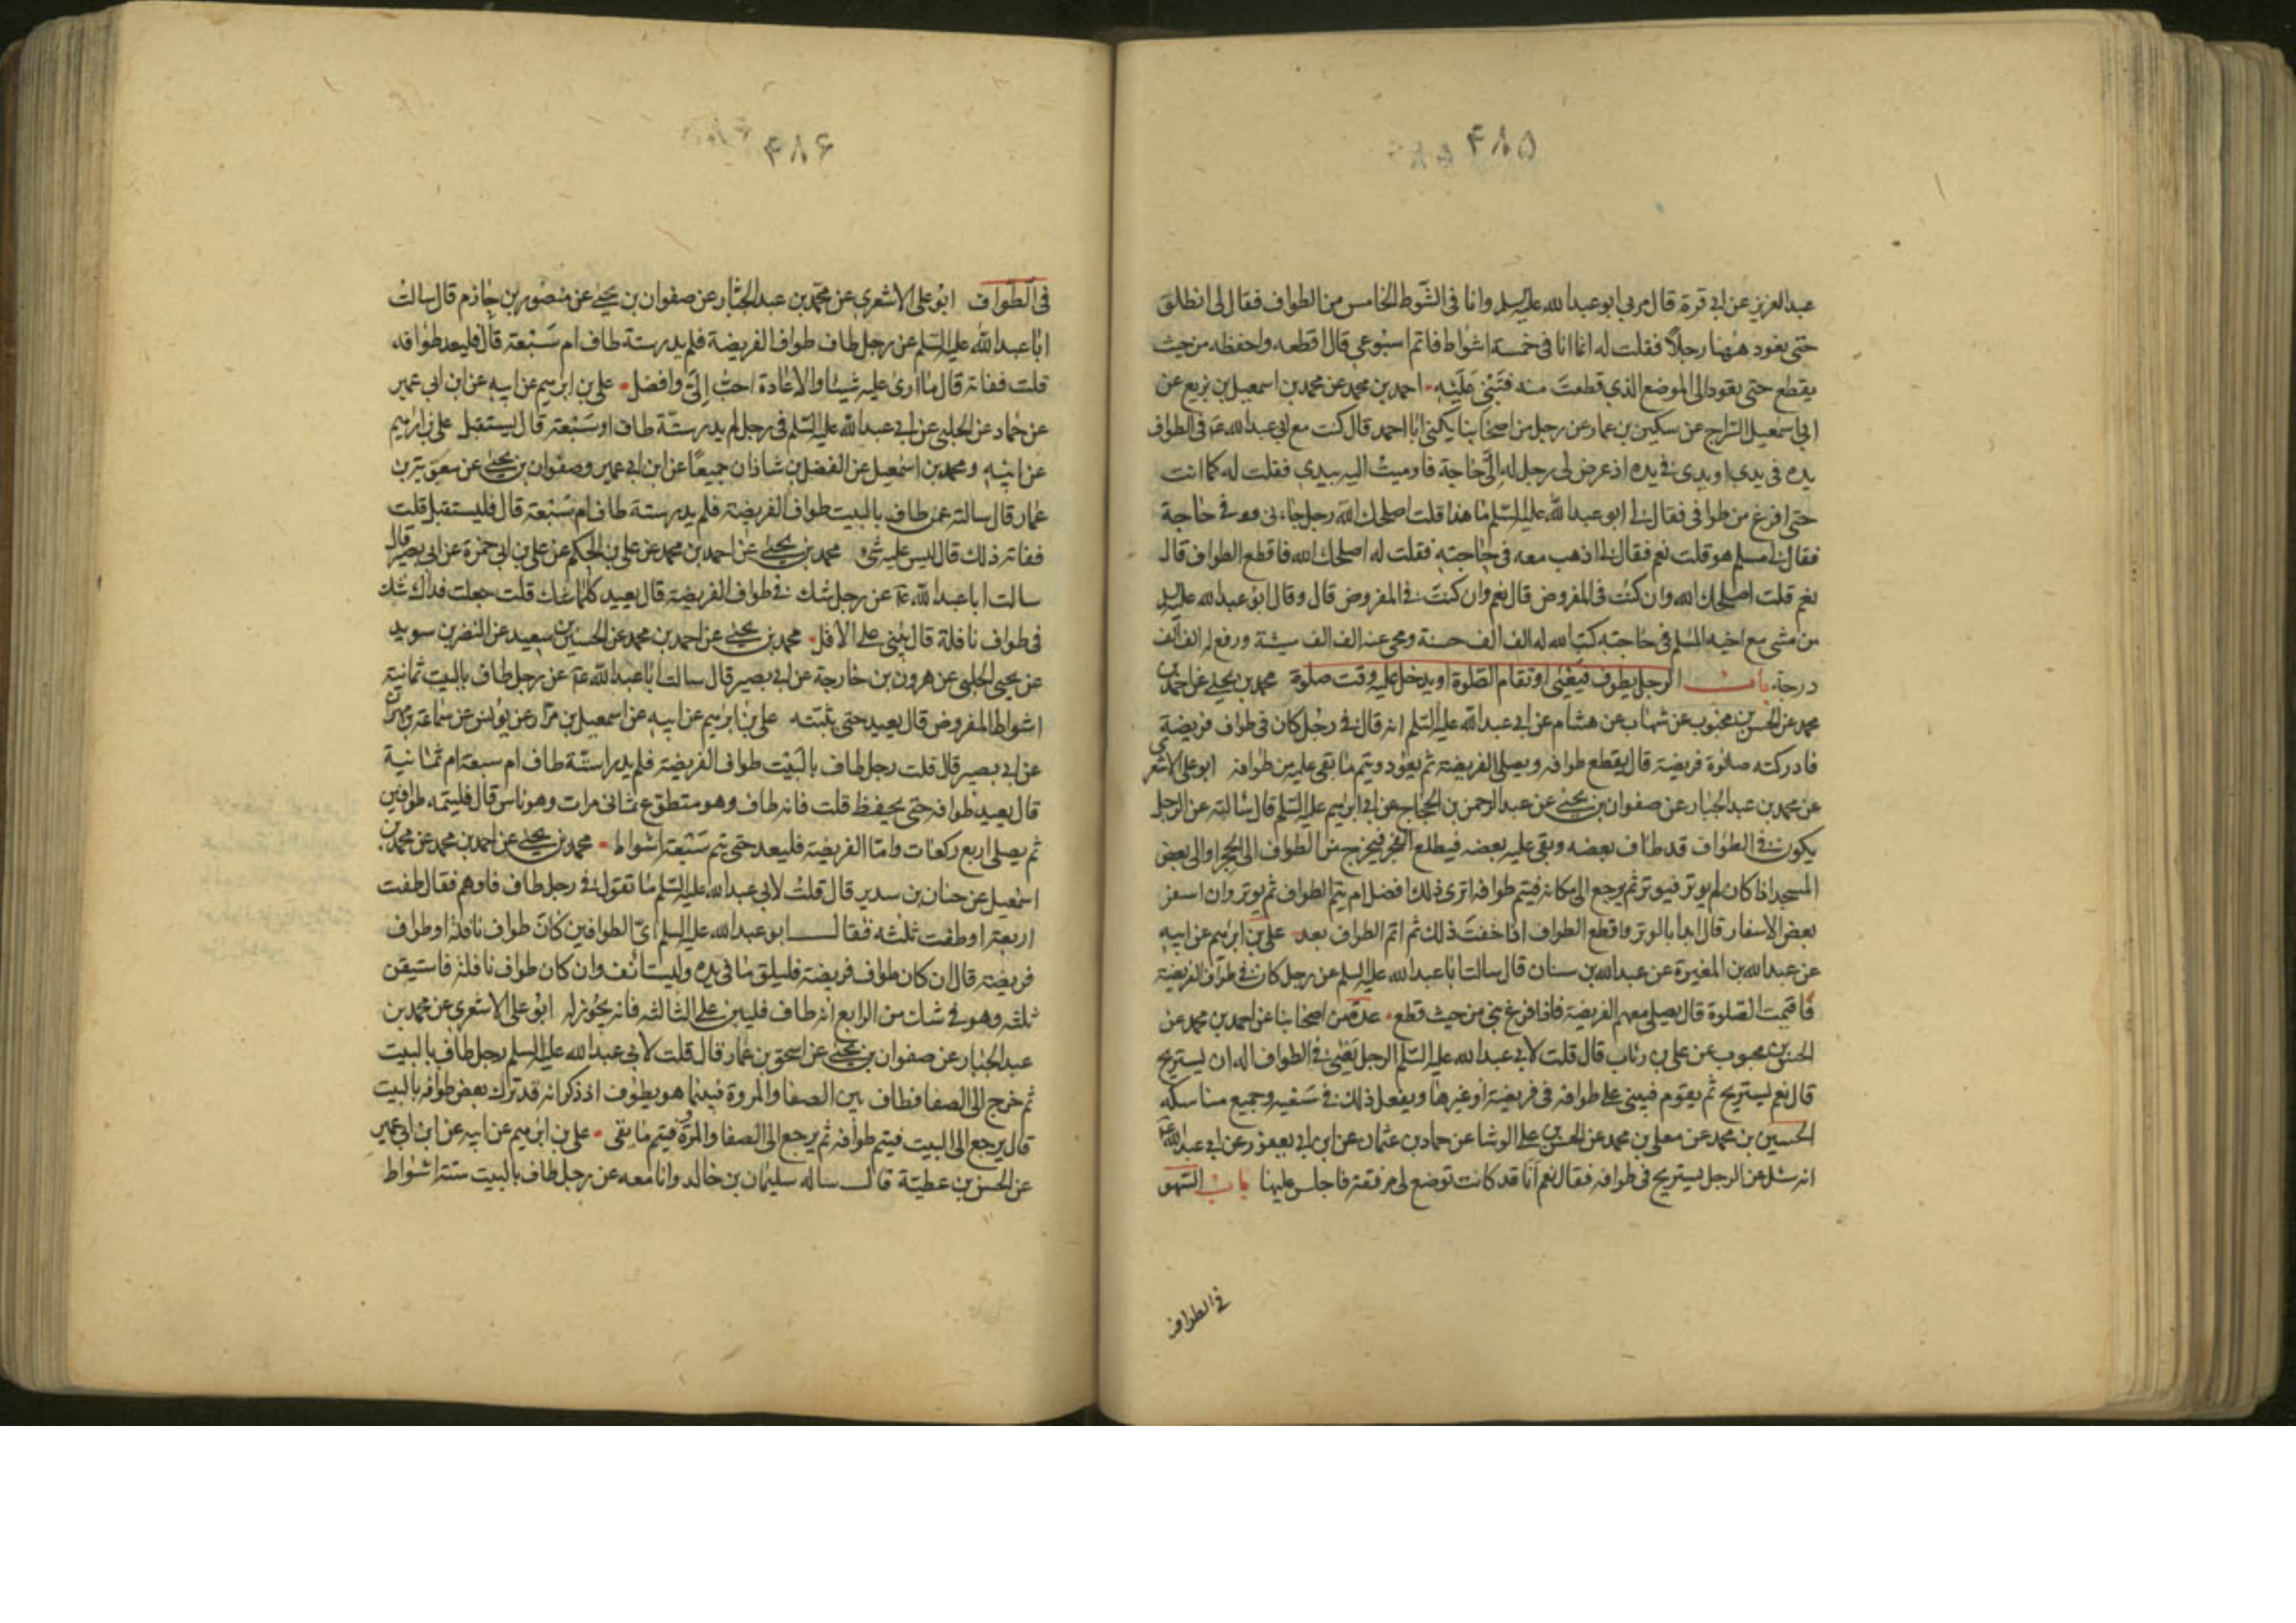 ۴۸۵
عبد العزيز عن ابي قرة قال مر بي ابو عبد الله عليه السلم وانا في الشوط الخامس من الطواف فقال لي انطلق
حتى نعود ههنا رجلا فقلت له انما انا في خمسة اشواط فاتم اسبوعي قال اقطعه واحفظه من حيث
يقطع حتى يعود الى الموضع الذي قطعت منه فتبني عليه احمد بن محمد عن محمد بن اسمعيل بن بزيع عن
ابي اسمعيل السراج عن سكين بن عمار عن رجل من اصحابنا يكنى ابا احمد قال كنت مع ابي عبد الله ع في الطواف
يده في يدي او يدي في يده اذ عرض لي رجل له الي حاجة فاوميت اليه بيدي فقلت له كما انت
حتى افرغ من طوافي فقال لي ابو عبد الله عليه السلم ما هذا قلت اصلحك الله رجل جاءني في حاجة
فقال لي مسلم هو قلت نعم فقال لي اذهب معه في حاجته فقلت له اصلحك الله فاقطع الطواف قال
نعم قلت اصلحك الله وان كنت في المفروض قال نعم وان كنت في المفروض قال وقال ابو عبد الله عليه السلم
من مشى مع اخيه المسلم في حاجته كتب الله له الف الف حسنة ومحى عنه الف الف سيئة ورفع له الف الف
درجة باب الرجل يطوف فيعيى او تقام الصلوة او يدخل عليه وقت صلوة محمد بن يحيى عن احمد بن
محمد عن الحسن بن محبوب عن شهاب عن هشام عن ابي عبد الله عليه السلم انه قال في رجل كان في طواف فريضة
فادركته صلوة فريضة قال يقطع طوافه ويصلي الفريضة ثم يعود ويتم ما بقي عليه من طوافه ابو علي الاشعري
عن محمد بن عبد الجبار عن صفوان بن يحيى عن عبد الرحمن بن الحجاج عن ابي ابرهيم عليه السلم قال سالته عن الرجل
يكون في الطواف قد طاف بعضه وبقي عليه بعضه فيطلع الفجر فيخرج من الطواف الى الحجر او الى بعض
المسجد اذا كان لم يوتر فيوتر ثم يرجع الى مكانه فيتم طوافه افترى ذلك افضل ام يتم الطواف ثم يوتر وان اسفر
بعض الاسفار قال ابدا بالوتر واقطع الطواف اذا خفت ذلك ثم اتم الطواف بعد علي بن ابرهيم عن ابيه
عن عبد الله بن المغيرة عن عبد الله بن سنان قال سالت ابا عبد الله عليه السلم عن رجل كان في طواف الفريضة
فاقيمت الصلوة قال يصلي معهم الفريضة فاذا فرغ بنى من حيث قطع عدة من اصحابنا عن احمد بن محمد عن
الحسن بن محبوب عن علي بن رئاب قال قلت لابي عبد الله عليه السلم الرجل يعيى في الطواف اله ان يستريح
قال نعم يستريح ثم يقوم فيبني على طوافه في فريضة او غيرها ويفعل ذلك في سعيه وجميع مناسكه
الحسين بن محمد عن معلى بن محمد عن الحسن بن علي الوشا عن حماد بن عثمان عن ابن ابي يعفور عن ابي عبد الله ع
انه سئل عن الرجل يستريح في طوافه فقال نعم انا قد كانت توضع لي مرفقة فاجلس عليها باب السهو
في الطواف
۴۸۶
في الطواف ابو علي الاشعري عن محمد بن عبد الجبار عن صفوان بن يحيى عن منصور بن حازم قال سالت
ابا عبد الله عليه السلم عن رجل طاف طواف الفريضة فلم يدر ستة طاف ام سبعة قال فليعد طوافه
قلت ففاته قال ما ارى عليه شيئا والاعادة احب الي وافضل علي بن ابرهيم عن ابيه عن ابن ابي عمير
عن حماد عن الحلبي عن ابي عبد الله عليه السلم في رجل لم يدر ستة طاف او سبعة قال يستقبل علي بن ابرهيم
عن ابيه ومحمد بن اسمعيل عن الفضل بن شاذان جميعا عن ابن ابي عمير وصفوان بن يحيى عن معوية بن
عمار قال سالته عمن طاف بالبيت طواف الفريضة فلم يدر ستة طاف ام سبعة قال فليستقبل قلت
ففاته ذلك قال ليس عليه شئ محمد بن يحيى عن احمد بن محمد عن علي بن الحكم عن علي بن ابي حمزة عن ابي بصير قال
سالت ابا عبد الله ع عن رجل شك في طواف الفريضة قال يعيد كلما شك قلت جعلت فداك شك
في طواف نافلة قال يبني على الاقل محمد بن يحيى عن احمد بن محمد عن الحسين بن سعيد عن النضر بن سويد
عن يحيى الحلبي عن هرون بن خارجة عن ابي بصير قال سالت ابا عبد الله ع عن رجل طاف بالبيت ثمانية
اشواط المفروض قال يعيد حتى يثبته علي بن ابرهيم عن ابيه عن اسمعيل بن مرار عن يونس عن سماعة بن مهران
عن ابي بصير قال قلت رجل طاف بالبيت طواف الفريضة فلم يدر استة طاف ام سبعة ام ثمانية
قال يعيد طوافه حتى يحفظ قلت فانه طاف وهو متطوع ثماني مرات وهو ناس قال فليتمه طوافين
ثم يصلي اربع ركعات واما الفريضة فليعد حتى يتم سبعة اشواط محمد بن يحيى عن احمد بن محمد عن محمد بن
اسمعيل عن حنان بن سدير قال قلت لابي عبد الله عليه السلم ما تقول في رجل طاف فاوهم فقال طفت
اربعة او طفت ثلثة فقال ابو عبد الله عليه السلم اي الطوافين كان طواف نافلة او طواف
فريضة قال ان كان طواف فريضة فليلق ما في يده وليستانف وان كان طواف نافلة فاستيقن
ثلثة وهو في شك من الرابع انه طاف فليبن على الثالثة فانه يجوز له ابو علي الاشعري عن محمد بن
عبد الجبار عن صفوان بن يحيى عن اسحق بن عمار قال قلت لابي عبد الله عليه السلم رجل طاف بالبيت
ثم خرج الى الصفا فطاف بين الصفا والمروة فبينما هو يطوف اذ ذكر انه قد ترك بعض طوافه بالبيت
قال يرجع الى البيت فيتم طوافه ثم يرجع الى الصفا والمروة فيتم ما بقى علي بن ابرهيم عن ابيه عن ابن ابي عمير
عن الحسن بن عطية قال ساله سليمان بن خالد وانا معه عن رجل طاف بالبيت ستة اشواط